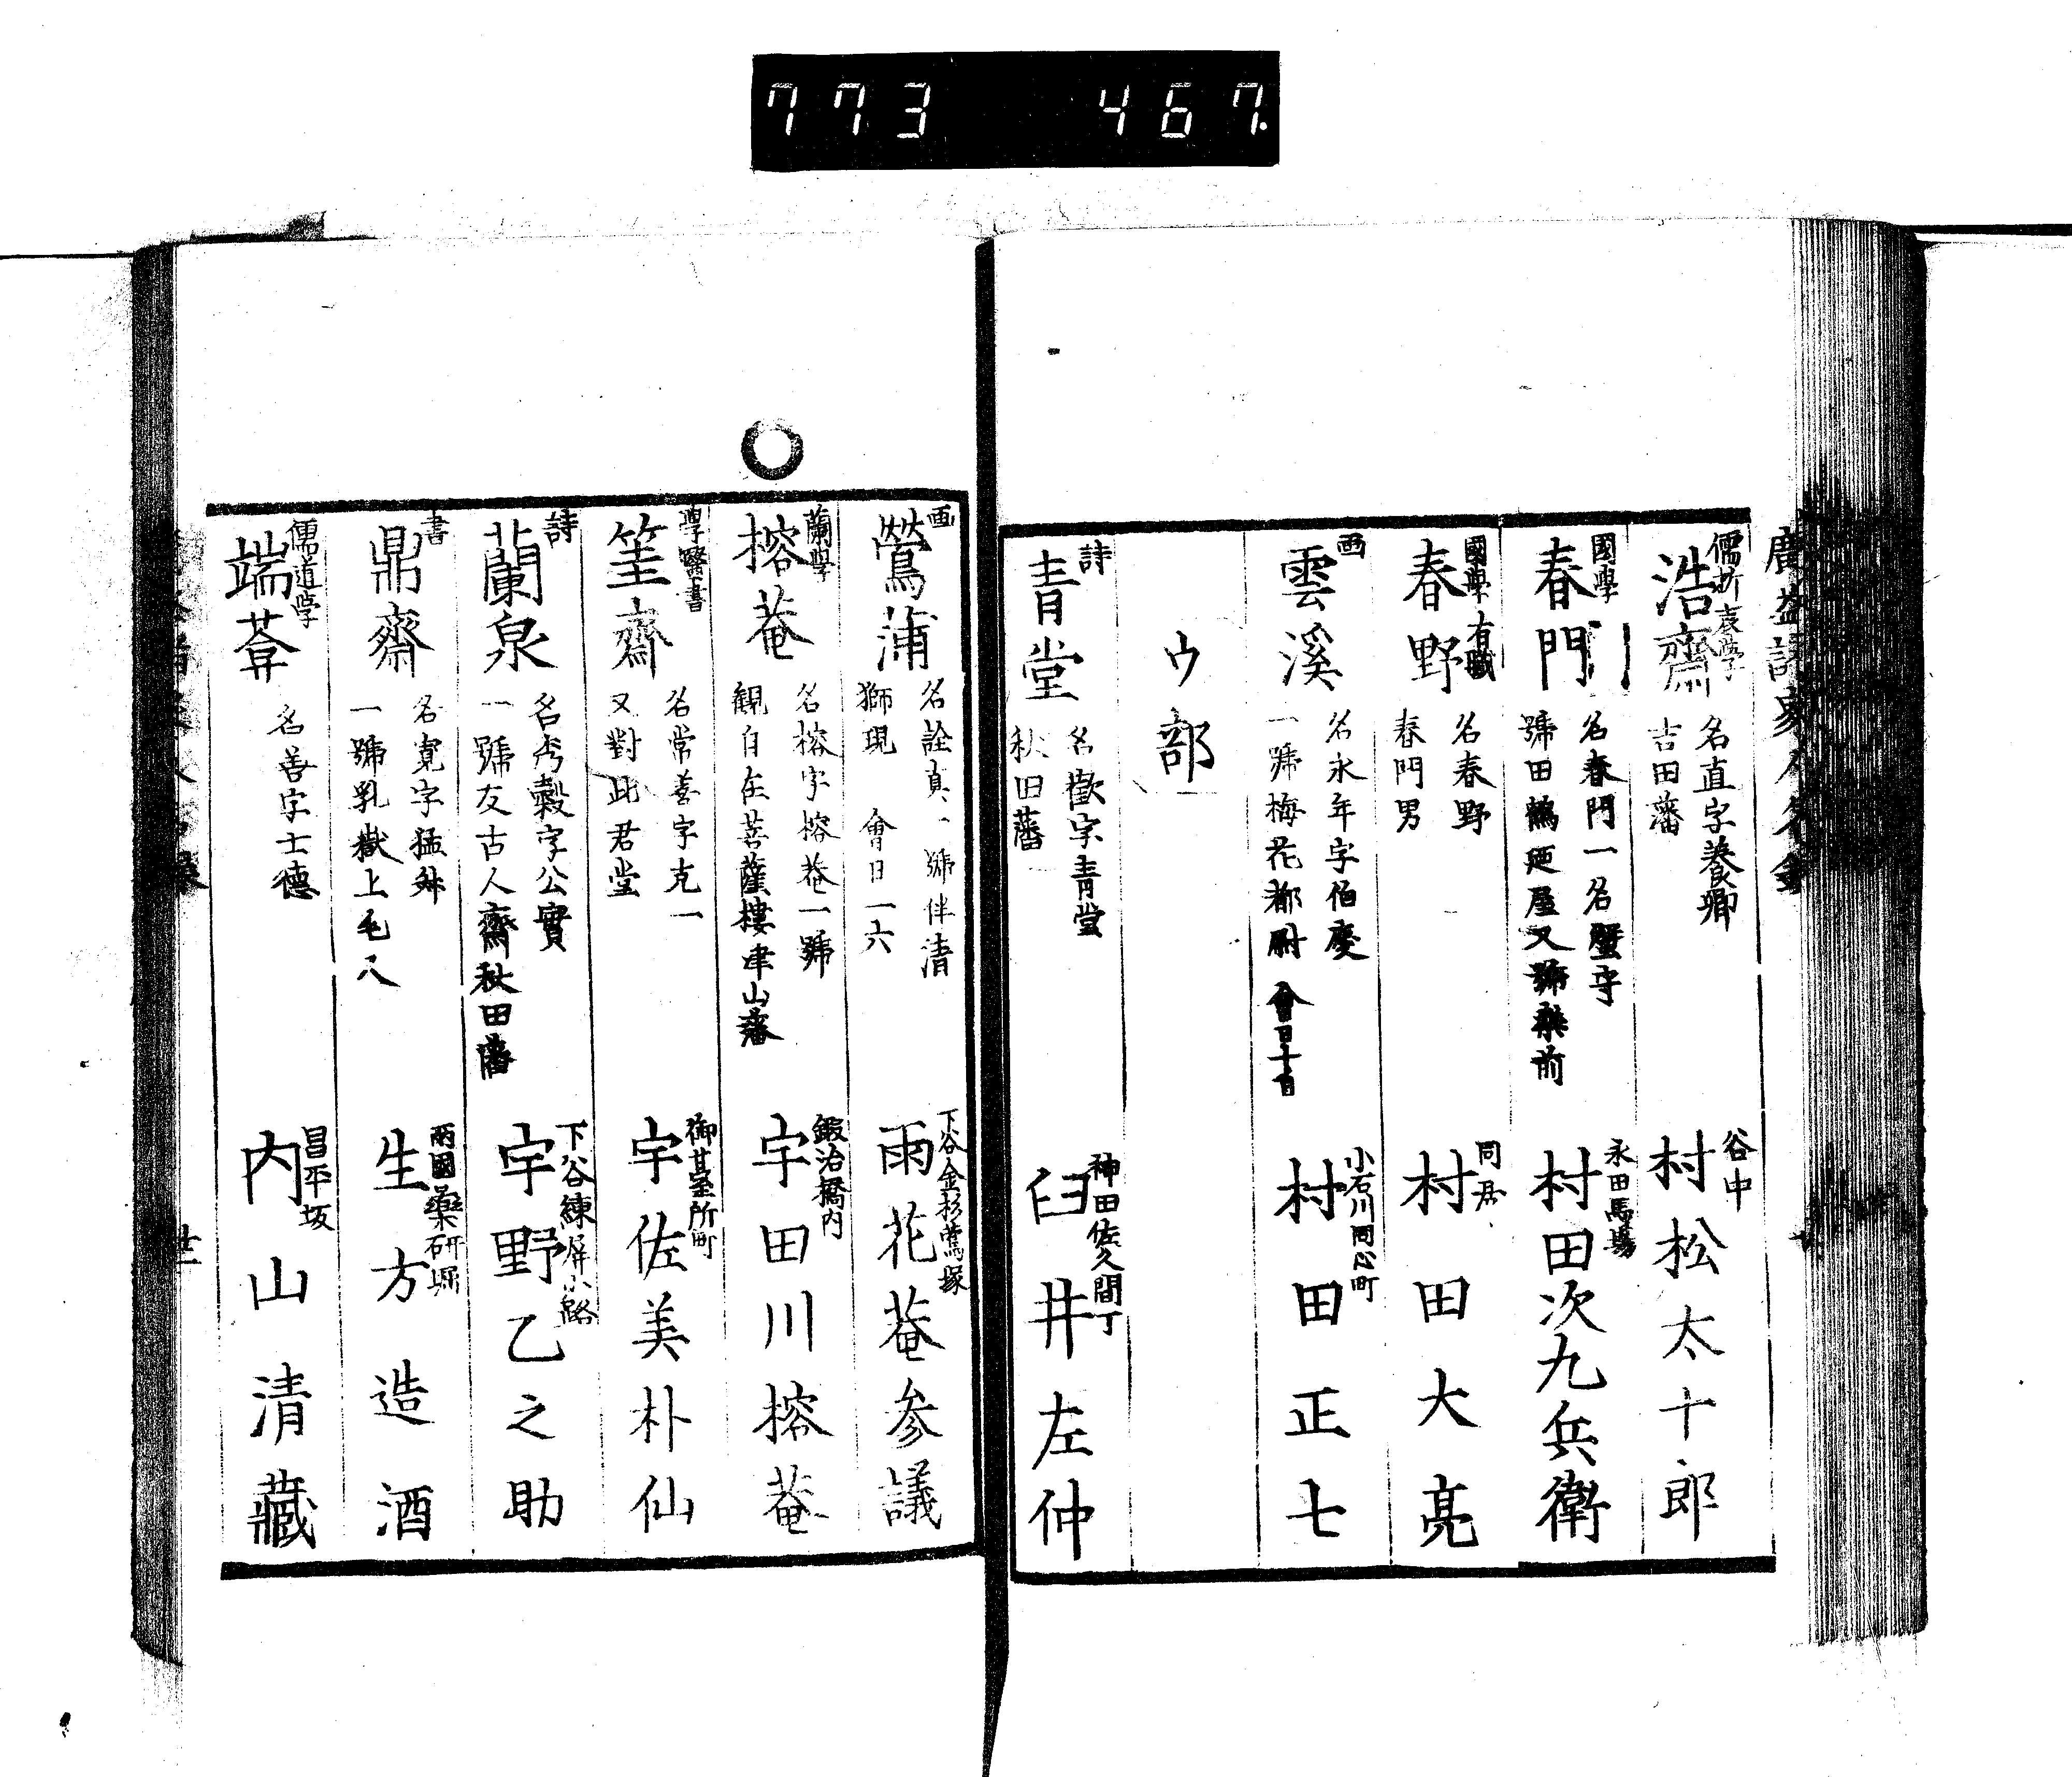 773 467.
儒折衷学
浩齋
名直字養卿
吉田藩
谷中
村松太十郎
國學
春門
名春門一名蟹守
號田鶴廼屋又號
永田馬場
村田次九兵衛
國學有職
春野
名春野
春門男
同居
村田大亮
画
雲溪
名永年字伯慶
一號梅花都尉 會日十百
小石川同心町
村田正七
ウ部
詩
青堂
名歡字青堂
秋田藩
神田佐久間丁
臼井左仲
画
鶯蒲
名詮真一號伴清
獅現 會日一六
下谷金杉鶯塚
雨花菴参議
蘭學
榕菴
名榕字榕菴一號
観自在菩薩樓津山藩
鍜冶橋内
宇田川榕菴
學醫書
筆齋
名常善字克一
又對此君堂
御臺所町
宇佐美朴仙
詩
蘭泉
名穀字公實
一號友古人齋秋田藩
下谷練屏小路
宇野乙之助
書
鼎齋
名寛字猛
一號乳嶽上毛人
兩國藥研堀
生方造酒
儒道学
端菴
名善字士德
昌平坂
内山清藏